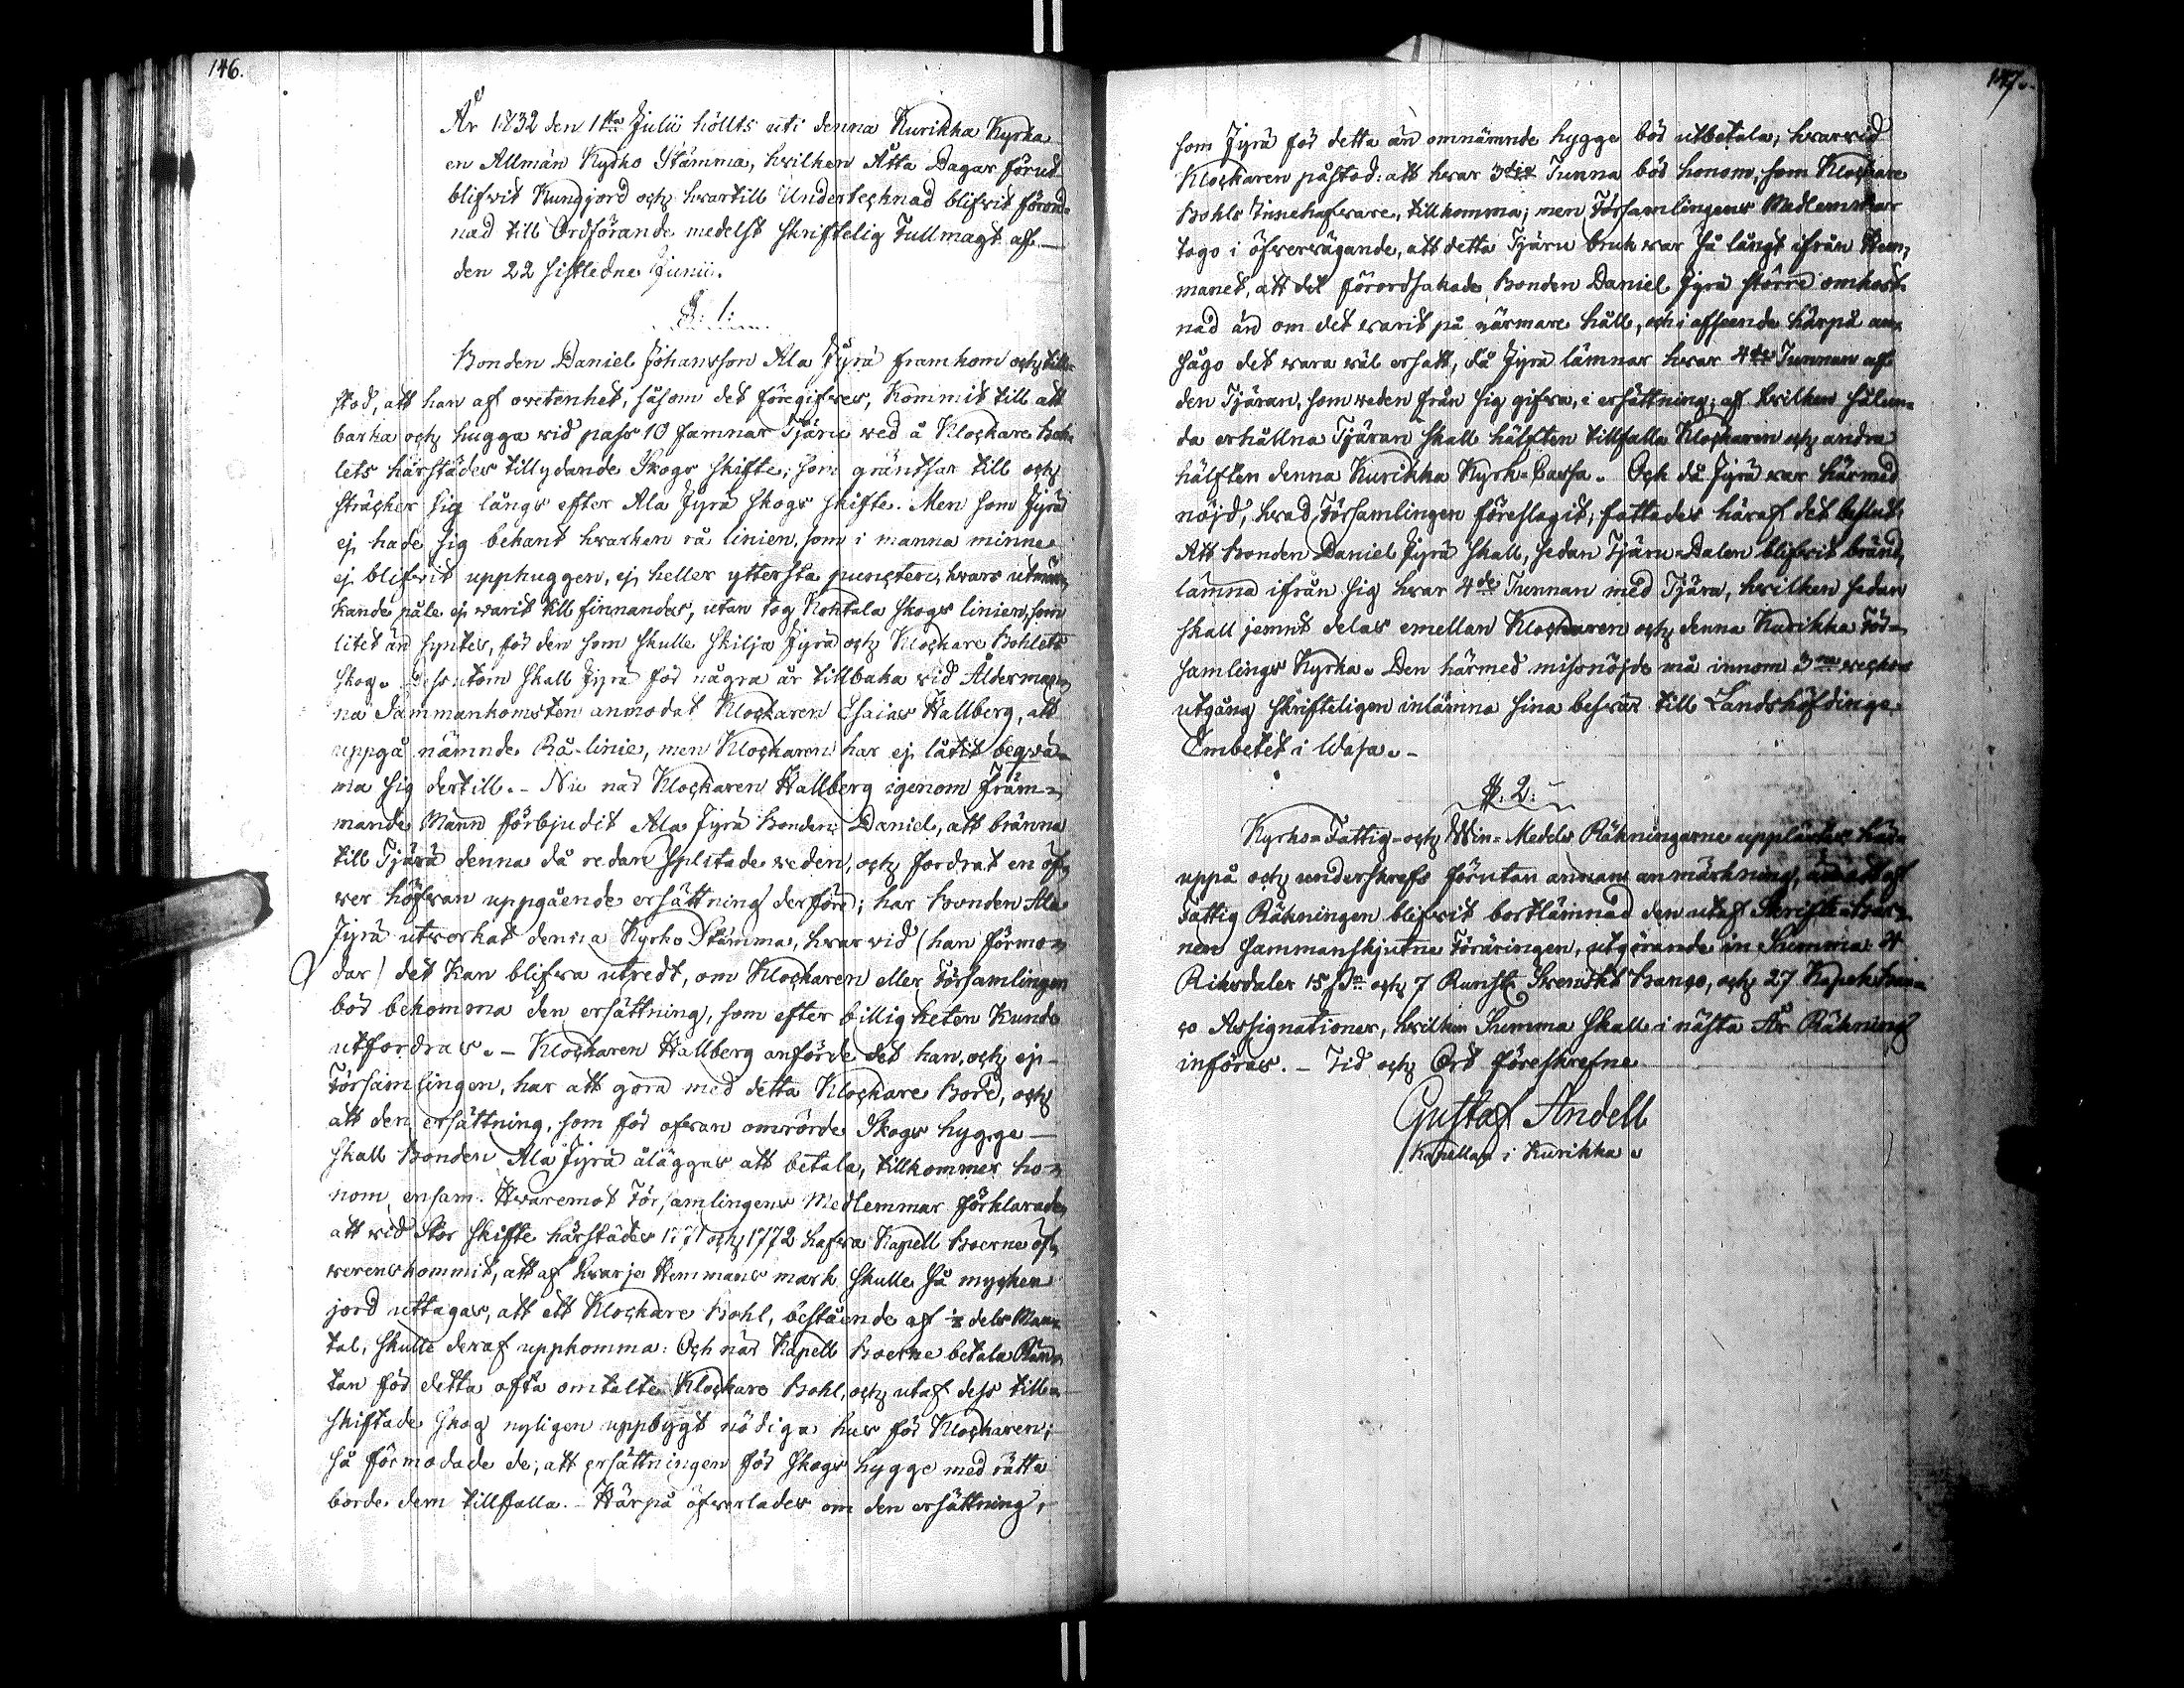 146.
År 1832 den 1sta Julii höllts uti denna Kurikka Kyrka
en Allmän Kyrko Stämma, hvilken Åtta Dagar förut
blifvit Kungjord och hvartill Undertecknad blifvit förord-
nad till Ordförande medelst skriftelig Fullmagt af
den 22 sistledne Junii.
§. 1:
Bonden Daniel Johansson Ala Jyrä framkom och till-
stod, att han af ovetenhet, såsom det föregifves, kommit till att
barka och hugga vid pass 10 famnar Tjäru ved å Klockare Boh-
lets härstädes tillydande Skogs skifte; som gräntsar till och
sträcker sig långs efter Ala Jyrä skogs skifte. Men som Jyrä
ej hade sig bekant hvarken rå linien, som i manna minne
ej blifvit upphuggen, ej heller yttersta puncten, hvars utmär-
kande påle ej varit till finnandes, utan tog Kontala Skogs linien, som
litet än syntes, för den som skulle skilja Jyrä och Klockare Bohlets
skog. Dessutom skall Jyrä för några år tillbaka vid Åldermän-
na Sammankomsten anmodat Klockaren Esaias Hallberg, att
uppgå nämnde Rå-linie, men Klockaren har ej låtit beqvä-
ma sig dertill. - Nu när Klockaren Hallberg igenom främ-
mande Mann förbjudit Ala Jyrä Bonden Daniel, att bränna
till Tjära denna då redan splitade veden, och fordrat en öf-
ver höfvan uppgående ersättning derföre; har Bonden Ala
Jyrä utverkat denna Kyrko Stämma, hvarvid (han förmo-
dar) det kan blifva utredt, om Klockaren eller Församlingen
bör bekomma den ersättning, som efter billigheten kunde
utfordras. - Klockaren Hallberg anförde det han, och ej
Församlingen, har att göra med detta Klockare Bord, och
att den ersättning, som för ofvan omrörde Skogs hygge
skall Bonden Ala Jyrä åläggas att betala, tillkommer ho-
nom ensam. Hvaremot Församlingens Medlemmar förklarade,
att vid Stor skifte härstädes 1771 och 1772 hafva Kapell Boerne öf-
verenskommit, att af hvarje Hemmans mark skulle så mycken
jord uttagas, att ett Klockare Bohl, bestående af dels Man-
tal, skulle deraf uppkomma: Och när Kapell Boerne betala Rän-
tan för detta ofta omtalte Klockare Bohl, och utaf dess till-
skiftade skog nyligen uppbygt nödiga hus för Klockaren;
så förmodade de, att ersättningen för Skogs hygge med rätta
borde dem tillfalla. - Härpå öfverlades om den ersättning,
147.
som Jyrä för detta än omnämnde hygge bör utbetala, hvarvid
Klockaren påstod: att hvar 3dje Tunna bör honom, som Klockare
Bohls Innehafvare, tillkomma; men Församlingens Medlemmar
togo i öfvervägande, att detta Tjäru bruk var så långt ifrån Hem-
manet, att det förordsakade Bonden Daniel Jyrä större omkost-
nad än om det varit på närmare håll, och i afseende härpå an-
sågo det vara väl ersatt, då Jyrä lämnar hvar 4de Tunnan af
den Tjäran, som veden från sig gifva, i ersättning; af hvilken sålun-
da erhållna Tjäran skall hälften tillfalla Klockaren och andra
hälften denna Kurikka Kyrk-Cassa. Och då Jyrä var härmed
nöjd, hvad Församlingen föreslagit; fattades häraf det beslut:
Att Bonden Daniel Jyrä skall, sedan Tjäru-Dalen blifvit bränd,
lämna ifrån sig hvar 4de Tunnan med Tjära, hvilken sedan
skall jemnt delas emellan Klockaren och denna Kurikka För-
samlings Kyrka. Den härmed missnöjde må innom 3ne veckors
utgång skrifteligen inlämna sina besvär till Landshöfdinge
Embetet i Wasa. -
§. 2:
Kyrko-Fattig- och Win-Medels Räkningarne upplästes här-
uppå och underskrefs förutan annan anmärkning, än att af
Fattig Räkningen blifvit bortlämnad den utaf Skrifte-Bar-
nen sammanskjutne Föräringen, utgörande in Summa: 4
Riksdaler 15 s:n och 7 Runst. Svenskt Banco, och 27 Kopek Ban-
co Assignationer, hvilken Summa skall i nästa År Räkning
införas. - Tid och Ort föreskrefne
Gustaf Andell
Kapellan i Kurikka.